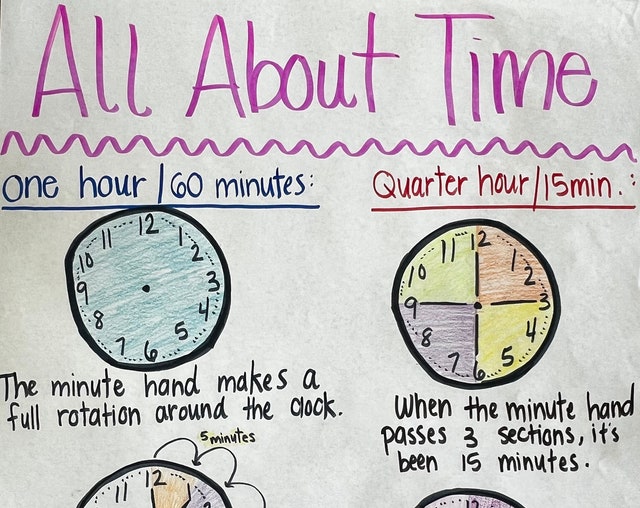 All About Time
One hour/60 minutes:
12
1
2
3
4
5
6
7
8
9
10
11
The minute hand makes a
full rotation around the clock.
Quarter hour/15min.:
12
1
2
3
4
5
6
7
8
9
10
11
When the minute hand
passes 3 sections, it's
been 15 minutes.
5 minutes
11
12
1
2
12